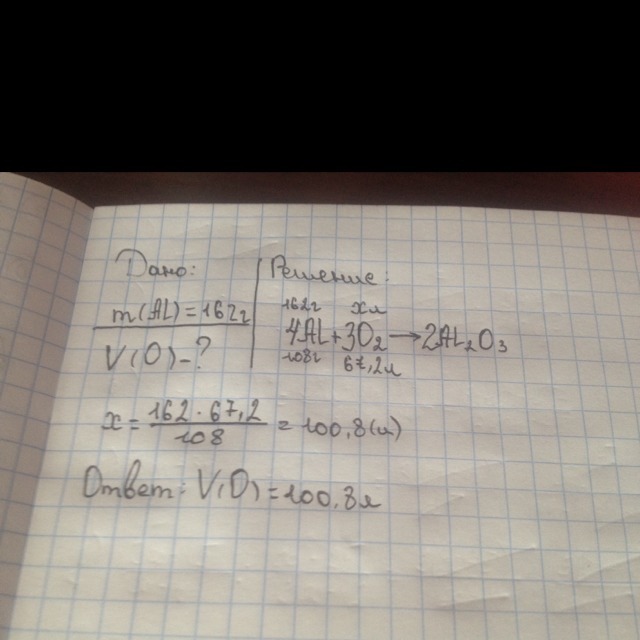 Дано:
Решение:
m(Al)=162г
V(O)-?
162г xл
4Al+3O₂→2Al₂O₃
108г 67,2л
x=162·67,2/108=100,8(л)
Ответ: V(O)=100,8л